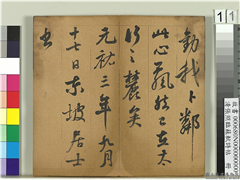 勸我卜鄰
此心飄然已在太
行之麓矣
元祐三年九月
十七日東坡居士
書